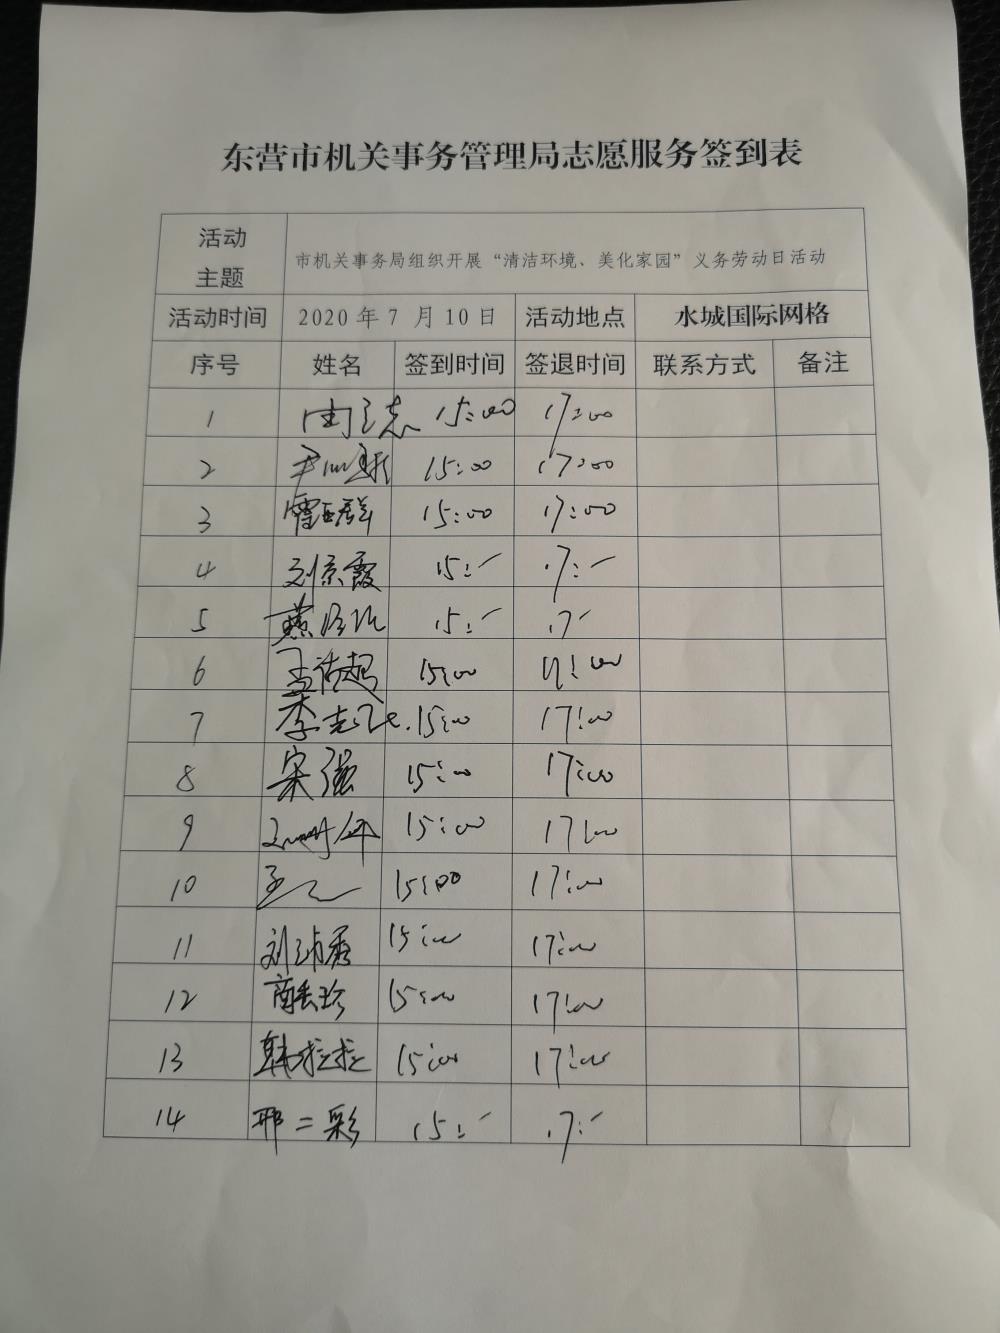 东营市机关事务管理局志愿服务签到表
活动
主题
市机关事务局组织开展“清洁环境、美化家园”义务劳动日活动
活动时间 2020年7月10日 活动地点 水城国际网格
序号 姓名 签到时间 签退时间 联系方式 备注
1 15:00 17:00
2 15:00 17:00
3 15:00 17:00
4 刘京霞 15:- 17:-
5 15:- 17-
6 15:00 17:00
7 15:00 17:00
8 宋强 15:00 17:00
9 15:00 17:00
10 15:00 17:00
11 15:00 17:00
12 15:00 17:00
13 韩拉拉 15:00 17:00
14 邢二彩 15:- 17:-